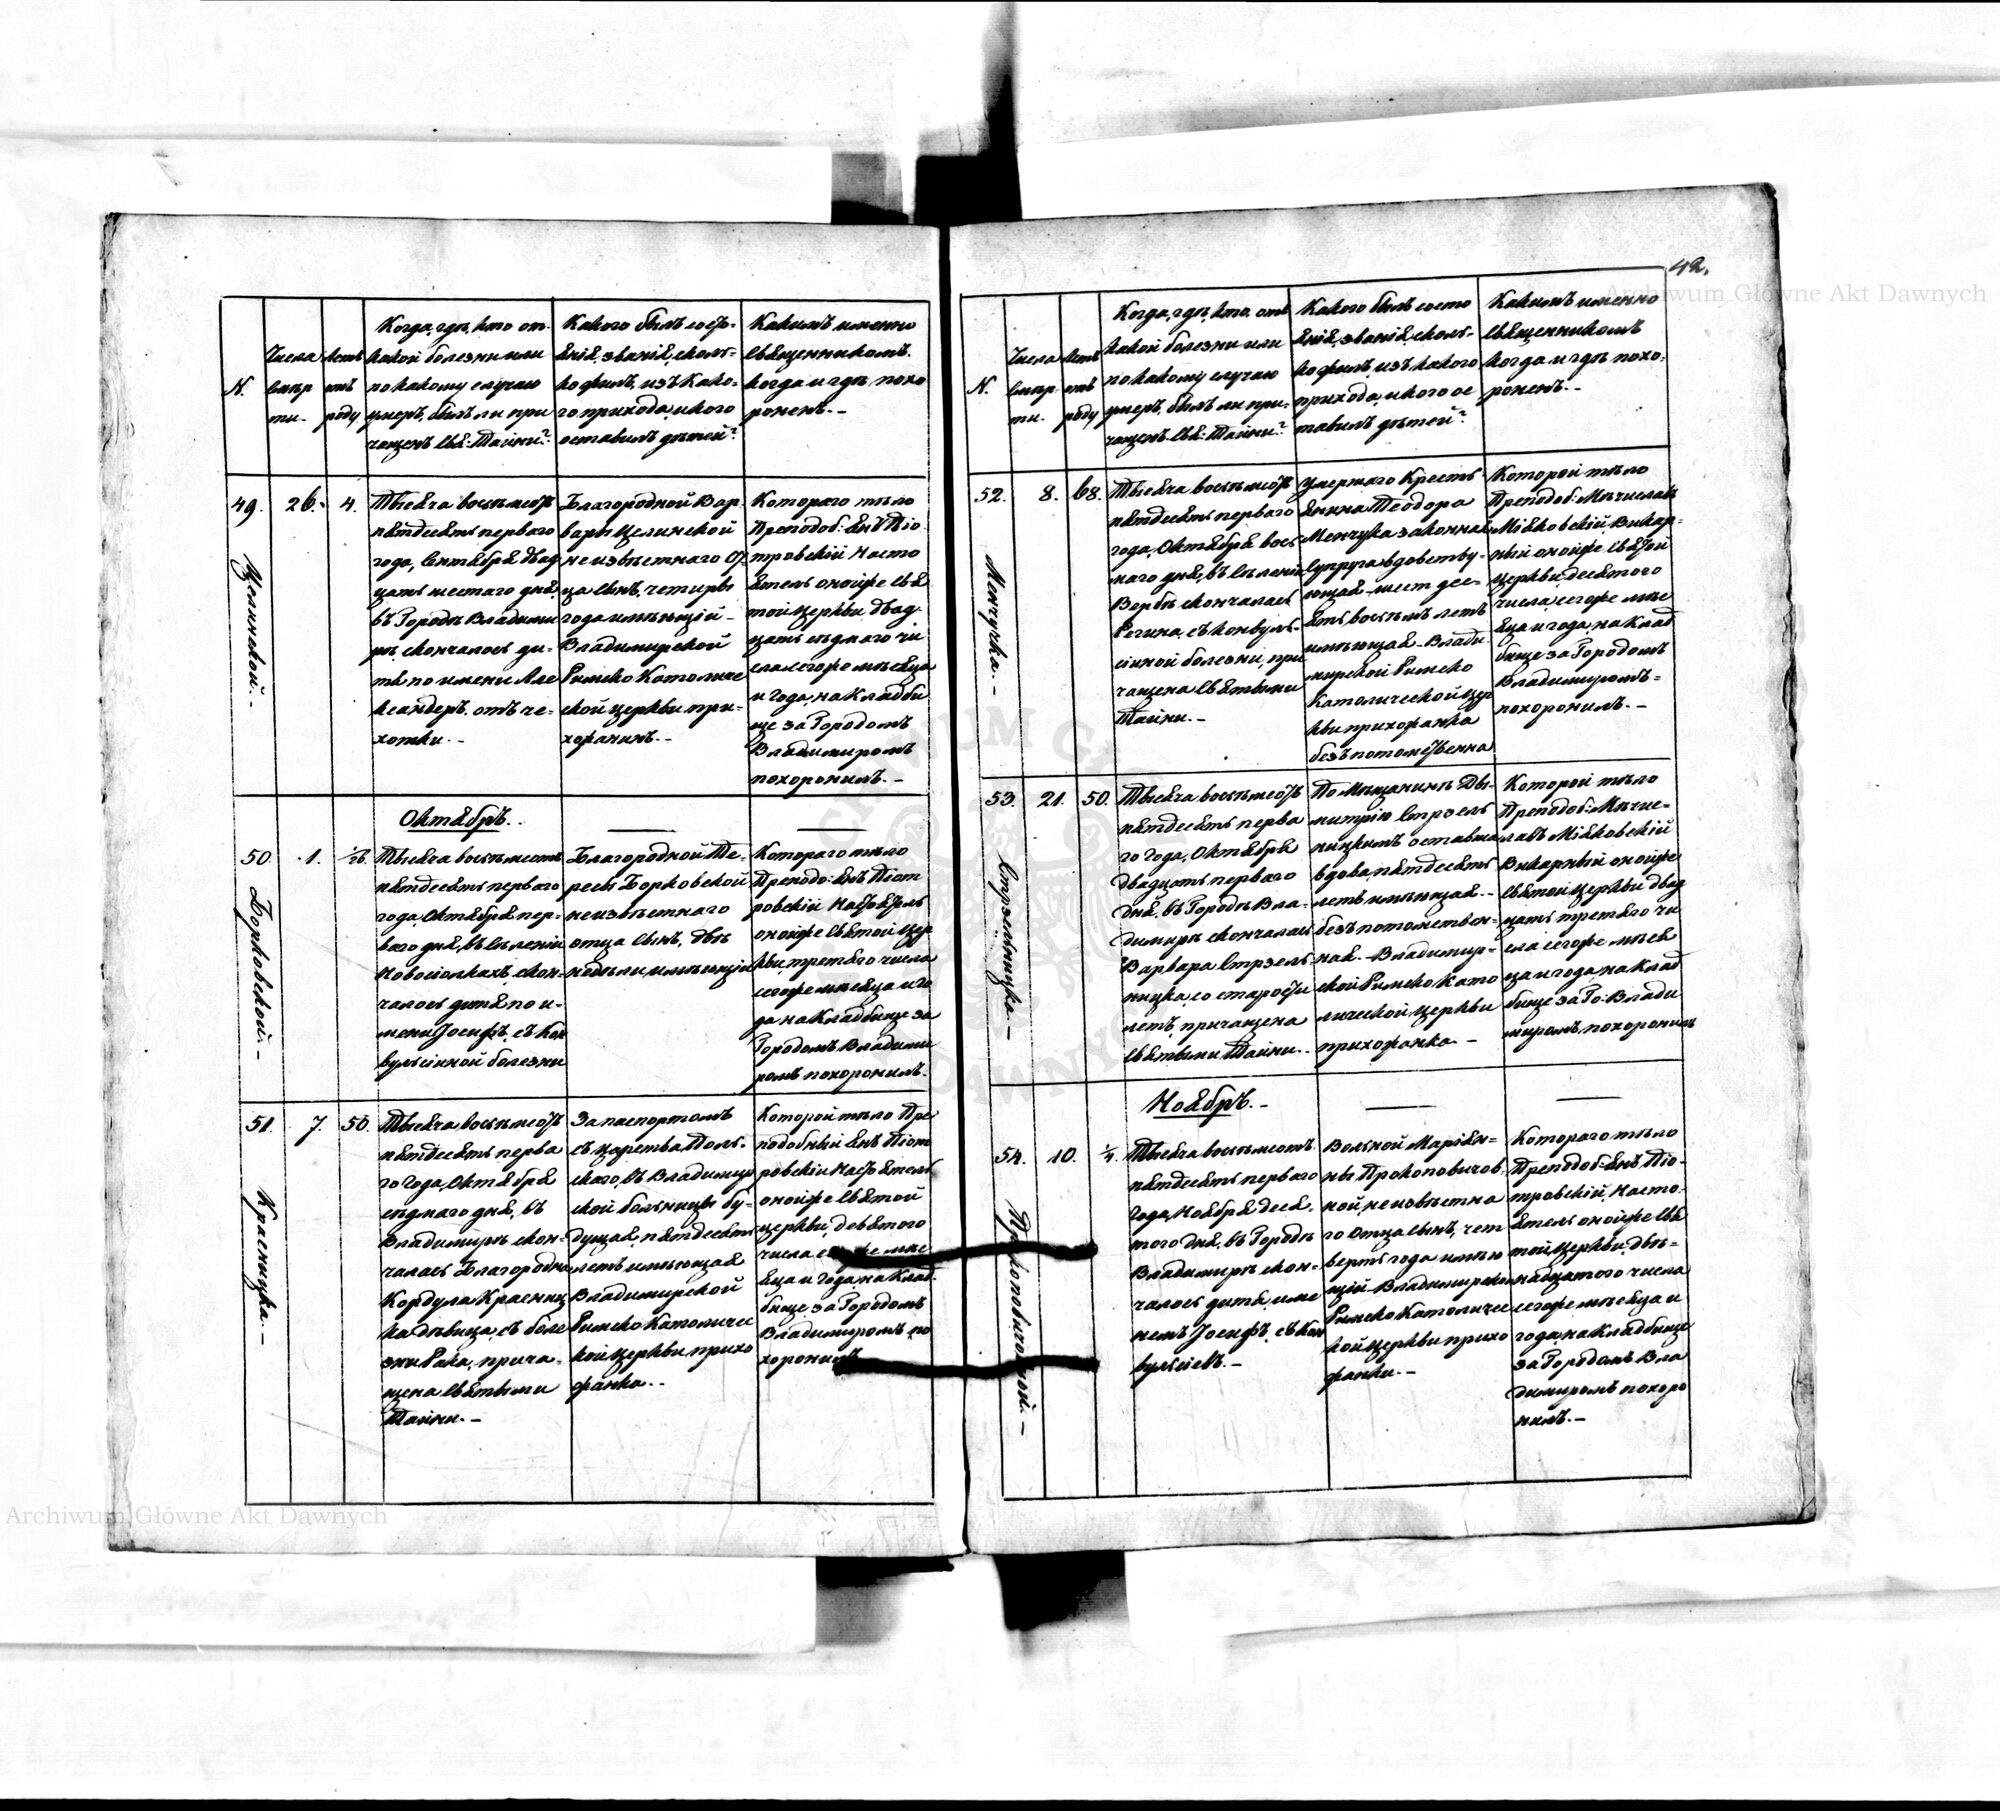 42.
N.
Числа
смѣр
ти.
Летъ
отъ
роду
Когда, гдѣ, кто, от
какой болезни или
по какому случаю
умеръ, былъ ли при
чащенъ Свя: Тайни?
Какого былъ состо-
янія, званія, сколь-
ко филъ, изъ како-
го прихода, и кого
оставилъ дѣтей?
Какимъ именно
священникомъ.
когда и гдѣ похо
роненъ. -
49.
26.
4.
Целинской. -
Тысяча восемьсотъ
пятдесятъ перваго
года, Сентября двад
цать шестаго дня,
въ Городѣ Владими
рѣ, скончалось ди-
тя по имени Але
ксандеръ, отъ че-
хотки. -
Благородной Вар
вары Целинской
неизвѣстнаго О
ца сынъ, четыры
года имѣющій -
Владимирской
Римско Католиче
ской церкви при-
хожанинъ. -
Котораго тѣло
Преподоб: Янъ Піо
тровскій Насто
ятель онойже Свя
той церкви, двад
цать седмаго чи
сла сегоже мѣсяца
и года, на кладби
ще за Городомъ
Владимиромъ
похоронилъ. -
Октябрь.
50.
1.
Борковской. -
Тысяча восемьсотъ
пятдесятъ перваго
года, Октября пер-
ваго дня, въ Сѣленіи
Новосіолкахъ, скон-
чалось дитя по и-
мени Іосифъ, съ Кон
вульсійной болезни
Благородной Те-
ресы Борковской
неизвѣстнаго
отца сынъ, двѣ
недѣли имѣющій
Котораго тѣло
Преподо: Янъ Піот
ровскій Настоятель
онойже Святой цер
кви, третяго числа
сегоже мѣсяца и го
да на Кладбище за
Городомъ Владими
ромъ похоронилъ. -
51.
7.
50.
Красницка. -
Тысяча восемьсотъ
пятдесятъ перва
го года, Октября
седмаго дня, въ
Владимирѣ скон-
чалась Благородна
Кордула Красниц
ка дѣвица съ боле
зни Рака, прича-
щена Святыми
Тайни. -
За паспортомъ
съ царства Поль-
скаго, въ Владимир
ской больницы бу-
дущая, пятдесятъ
летъ имѣющая
Владимирской
Римско Католичес
кой церкви прихо
жанка. -
Которой тѣло Пре
подобный Янъ Піот
ровскій Настоятель
онойже Святой
церкви, девятого
числа сегоже мѣс
яца и года, на Клад
бище за Городомъ
Владимиромъ по
хоронилъ
N.
Числа
смѣр
ти.
Летъ
отъ
роду
Когда, гдѣ, кто, отъ
какой болезни или
по какому случаю
умеръ, былъ ли при-
чащенъ Свя: Тайни?
Какого былъ состо
янія, званія, сколь-
ко филъ, изъ какого
прихода, и кого ос
тавилъ дѣтей?
Какимъ именно
священникомъ
когда и гдѣ похо-
роненъ. -
52.
8.
68.
Менчучка. -
Тысяча восемьсотъ
пятдесятъ перваго
года, Октября вось
маго дня, въ Сѣленіи
Вербѣ скончалась
Регина, съ конвуль-
сійной болезни, при
чащена Святыми
Тайни. -
умершаго Кресть
янина Теодора
Менчука законная
супруга вдовству-
ющая - шест дес-
ятъ, восьмъ летъ
имѣющая - Влади
мирской Римско
Католической цер
кви прихожанка
безъ потомственна
Которой тѣло
Преподоб: Мѣчиславъ
Міяковскій, Викар-
ный онойже Святой
церкви, десятого
числа, сегоже мѣс
яца и года, на клад
бище за Городомъ
Владимиромъ -
похоронилъ. -
53.
21.
50.
Стрзельницка. -
Тысяча восемьсотъ
пятдесятъ перва
го года, Октября
двадцать перваго
дня, въ Городѣ Вла-
димирѣ скончалась
Варвара Стрзель
ницка, со старости
летъ, причащена
Святыми Тайни. -
По Мѣщанинѣ Ды-
митрію Стрзель
ницкимъ оставша
вдова, пятдесятъ
летъ имѣющая. -
безъ потомствен-
ная. - Владимир-
ской Римско Като
лической церкви
прихожанка. -
Которой тѣло
Преподоб: Мѣчис-
лавъ Міяковскій
Викарный онойже
Святой церкви двад
цать третяго чи
сла сегоже мѣся
ца и года, на Клад
бище за Го: Влади
миромъ, похоронилъ
Ноябрь. -
54.
10.
1/4.
Прокоповичовной. -
Тысяча восемьсотъ
пятдесятъ перваго
года, Ноября деся-
того дня, въ Городѣ
Владимирѣ скон-
чалось дитя, име
немъ Іосифъ, съ Кон
вульсіевъ. -
Вольной Маріян-
ны Прокоповичов
ной, неизвѣстна
го отца сынъ, чет
верть года имѣю
щій - Владимирской
Римско Католичес
кой церкви прихо
жанки. -
Котораго тѣло
Преподоб: Янъ Піо-
тровскій, Насто-
ятель онойже Свя
той церкви, двѣ-
надцатого числа
сегоже мѣсяца и
года, на Кладбище
за Городомъ Вла
димиромъ похоро
нилъ. -
Archiwum Główne Akt Dawnych
Archiwum Główne Akt Dawnych